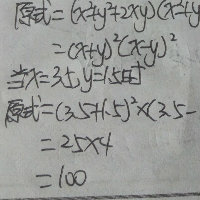 原式=(x²+y²+2xy)(x²+y
=(x+y)²(x-y)²
当x=3.5,y=1.5时
原式=(3.5+1.5)²×(3.5-
=25×4
=100